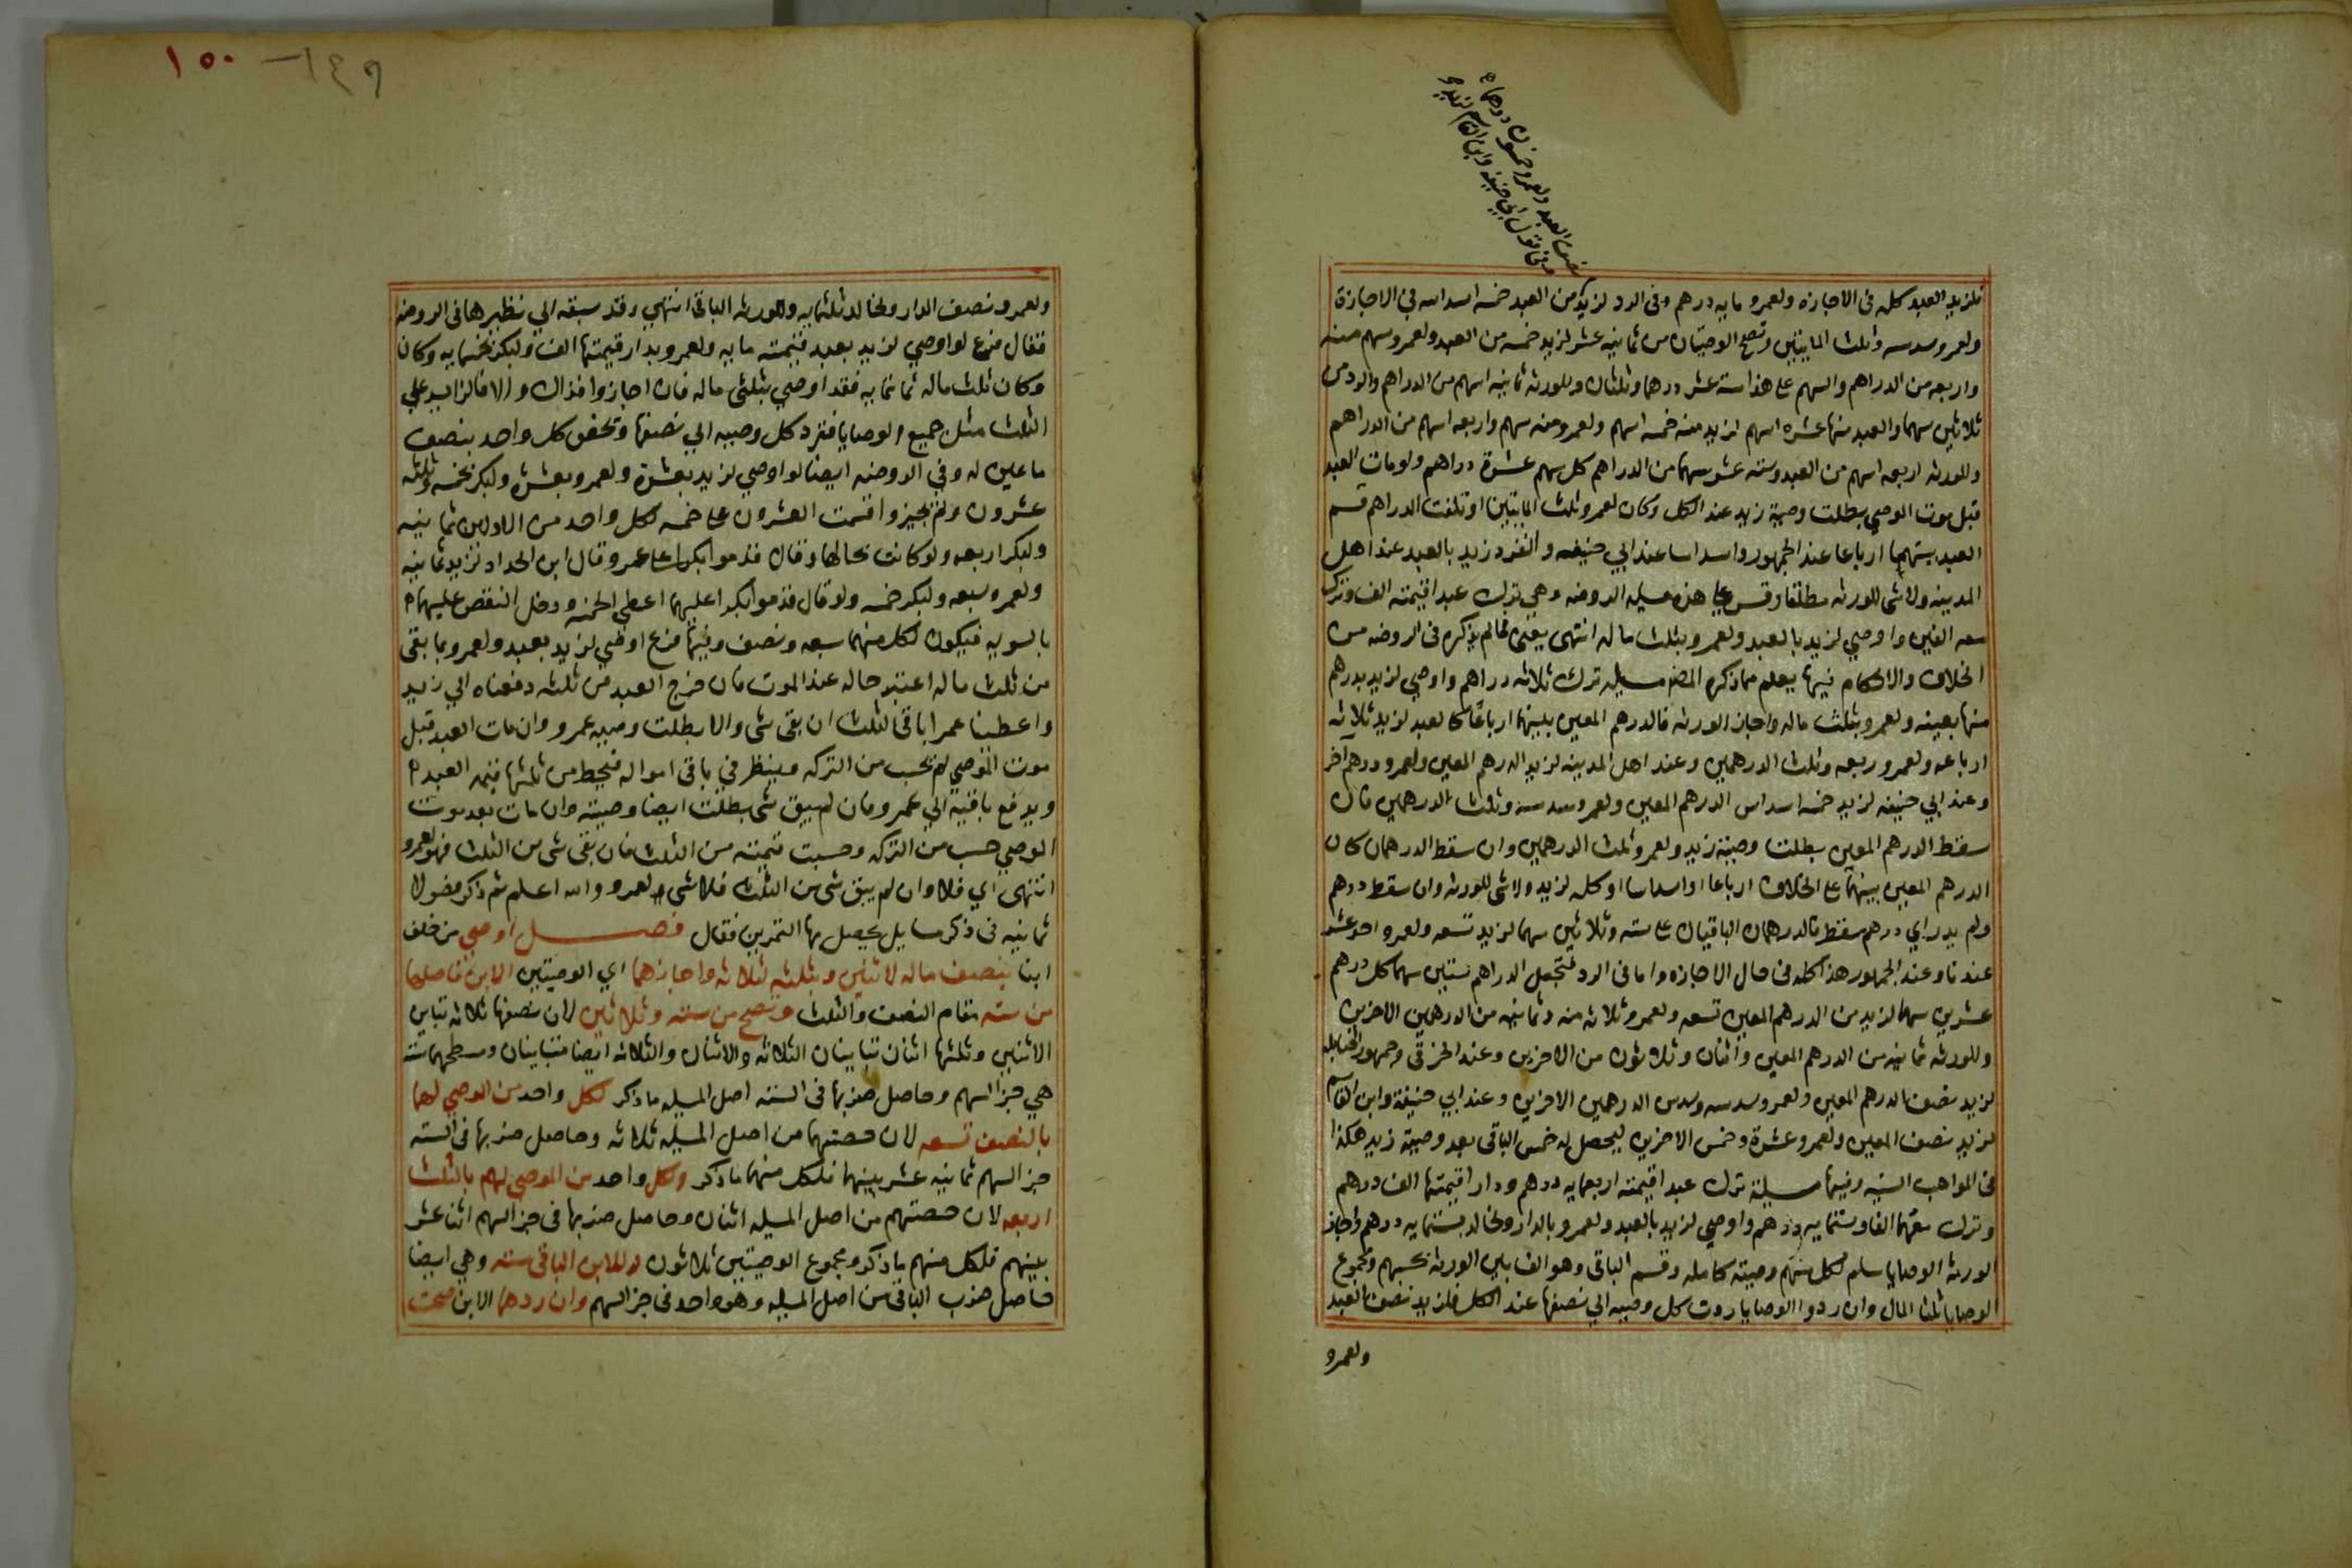 نصف العبد ولعمرو خمسون درهما
وفي قول ابي حنيفة وابن القاسم لزيد
فلزيد العبد كله فى الاجازه ولعمرو مايه درهم وفى الرد لزيد من العبد خمسه اسداسه فى الاجازة
ولعمرو سدسه وثلث المايتين وتصح الوصيتان من ثمانيه عشر لزيد خمسه من العبد ولعمرو سهم منه
واربعه من الدراهم والسهم على هذا سته عشر درهما وثلثان وللورثه ثمانيه اسهم من الدراهم والرد من
ثلاثين سهما والعبد منها عشره اسهم لزيد منه خمسه اسهم ولعمرو منه سهم واربعه اسهم من الدراهم
وللورثه اربعه اسهم من العبد وسته عشر سهما من الدراهم كل سهم عشرة دراهم ولو مات العبد
قبل موت الموصي بطلت وصية زيد عند الكل وكان لعمرو ثلث المايتين او تلفت الدراهم قسم
العبد بينهما ارباعا عند الجمهور واسداسا عند ابي حنيفه وانفرد زيد بالعبد عند اهل
المدينه ولا شى للورثه مطلقا وقس على هذه مسيله الروضه وهي ترك عبدا قيمته الف وترك
معه الفين واوصي لزيد بالعبد ولعمرو بثلث ماله انتهى يعنى فما لم يذكره فى الروضه من
الخلاف والاحكام فيها يعلم مما ذكره المصنف مسيله ترك ثلاثه دراهم واوصي لزيد بدرهم
منها بعينه ولعمرو بثلث ماله واجاز الورثه فالدرهم المعين بينهما ارباعًا كالعبد لزيد ثلاثه
ارباعه ولعمرو ربعه وثلث الدرهمين وعند اهل المدينه لزيد الدرهم المعين ولعمرو درهم اخر
وعند ابي حنيفه لزيد خمسه اسداس الدرهم المعين ولعمرو سدسه وثلث الدرهمين فان
سقط الدرهم المعين بطلت وصية زيد ولعمرو ثلث الدرهمين وان سقط الدرهمان كان
الدرهم المعين بينهما على الخلاف ارباعا او اسداسا او كله لزيد ولا شى للورثه وان سقط درهم
ولم يدر اي درهم سقط فالدرهمان الباقيان على سته وثلاثين سهما لزيد تسعه ولعمرو احد عشر
عندنا وعند الجمهور هذا كله فى حال الاجازه واما فى الرد فتجعل الدراهم ستين سهما كل درهم
عشرين سهما لزيد من الدرهم المعين تسعه ولعمرو ثلاثه منه وثمانيه من الدرهمين الاخرين
وللورثه ثمانيه من الدرهم المعين واثنان وثلاثون من الاخرين وعند الخرقى وجمهور الحنابله
لزيد نصف الدرهم المعين ولعمرو سدسه وسدس الدرهمين الاخرين وعند ابي حنيفة وابن القاسم
لزيد نصف المعين ولعمرو عشرة وخمس الاخرين ليحصل له خمس الباقى بعد وصية زيد هكذا
فى المواهب السنيه وفيها مسيلة ترك عبدا قيمته اربعمايه درهم ودارا قيمتها الف درهم
وترك معهما الفا وستمايه درهم واوصي لزيد بالعبد ولعمرو بالدار ولخالد بستمايه درهم واجاز
الورثه الوصايا سلم لكل منهم وصيته كامله وقسم الباقى وهو الف بين الورثه بحسبهم ومجموع
الوصايا ثلثا المال وان ردوا الوصايا ردت كل وصيه الي نصفها عند الكل فلزيد نصف العبد
ولعمرو
١٤٩
١٥٠
ولعمرو نصف الدار ولخالد ثلثمايه وللورثه الباقى انتهي وقد سبقه الي نظيرها فى الروضه
فقال فرع لو اوصي لزيد بعبد قيمته مايه ولعمرو بدار قيمتها الف ولبكر بخمسمايه وكان
وكان ثلث ماله ثمانمايه فقد اوصي بثلثى ماله فان اجازوا فذاك والا فالزايد علي
الثلث مثل جميع الوصايا فترد كل وصيه الي نصفها وتحقق كل واحد بنصف
ما عين له وفي الروضه ايضا لو اوصي لزيد بعشرة ولعمرو بعشره ولبكر بخمسه وثلثه
عشرون ولم يجيزوا قسمت العشرون على خمسه لكل واحد من الاولين ثمانيه
ولبكر اربعه ولو كانت بحالها وقال قدموا بكرا على عمرو قال ابن الحداد لزيد ثمانيه
ولعمرو سبعه ولبكر خمسه ولو قال قدموا بكرا عليهما اعطي الخمسه ودخل النقص عليهما
بالسويه فيكون لكل منهما سبعه ونصف وفيها فرع اوصي لزيد بعبد ولعمرو بما بقى
من ثلث ماله اعتبر حاله عند الموت فان خرج العبد من ثلثه دفعناه الي زيد
واعطينا عمرا باقى الثلث ان بقى شى والا بطلت وصيه عمرو وان مات العبد قبل
موت الموصي لم يحسب من التركه وينظر في باقى امواله فيحط من ثلثها قيمه العبد
ويدفع باقيه الي عمرو فان لم يبق شى بطلت ايضا وصيته وان مات بعد موت
الموصي حسب من التركه وحسبت قيمته من الثلث فان بقى شى من الثلث فهو لعمرو
انتهى اي فلا وان لم يبق شى من الثلث فلا شى لعمرو والله اعلم ثم ذكر فصولا
ثمانيه فى ذكر مسايل يحصل بها التمرين فقال فصل اوصي من خلف
ابنا بنصف ماله لاثنين وبثلثه لثلاثه واجازهما اي الوصيتين الابن فاصلها
من سته مقام النصف والثلث وتصح من سته وثلاثين لان نصفها ثلاثه تباين
الاثنين وثلثها اثنان تباينان الثلاثه والاثنان والثلاثه ايضا متباينان ومسطحهما سته
هي جز السهم وحاصل ضربها فى السته اصل المسيله ما ذكر لكل واحد من الموصي لهما
بالنصف تسعه لان حصتهما من اصل المسيله ثلاثه وحاصل ضربها فى السته
جز السهم ثمانيه عشر بينهما فلكل منهما ما ذكر ولكل واحد من الموصي لهم بالثلث
اربعه لان حصتهم من اصل المسيله اثنان وحاصل ضربها فى جز السهم اثنا عشر
بينهم فلكل منهم ما ذكر ومجموع الوصيتين ثلاثون وللابن الباقى سته وهي ايضا
حاصل ضرب الباقى من اصل المسيله وهو واحد فى جز السهم وان ردهما الابن صحت